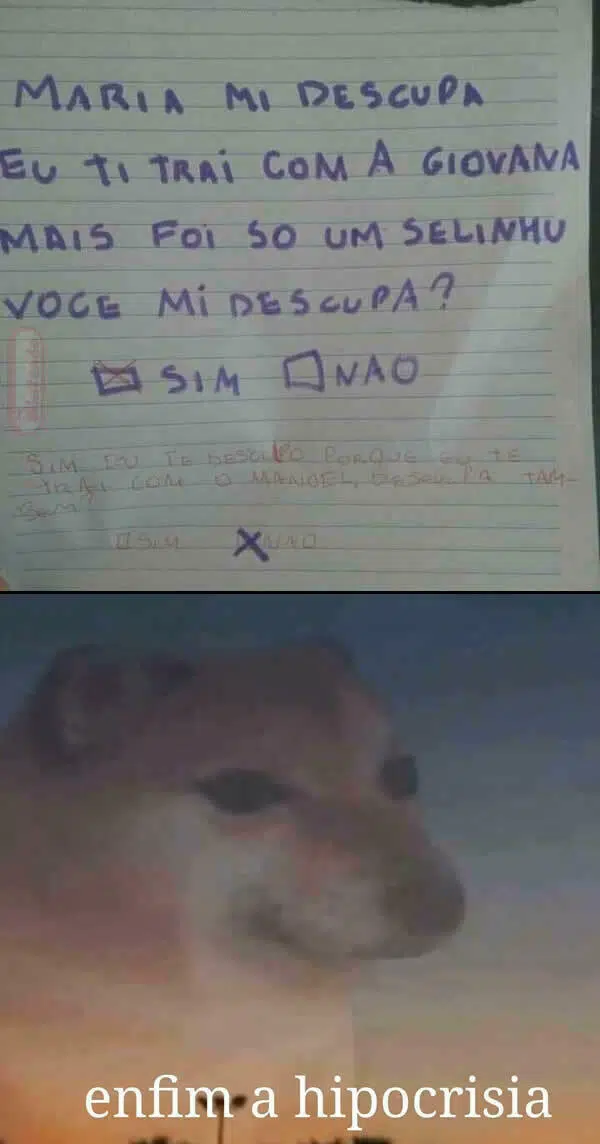 MARIA MI DESCUPA
EU TI TRAI COM A GIOVANA
MAIS FOI SO UM SELINHU
VOCE MI DESCUPA?
SIM NAO
SIM EU TE DESCULPO PORQUE EU TE
TRAI COM O MANOEL, DESCULPA TAM-
BEM
SIM NAO
enfim a hipocrisia